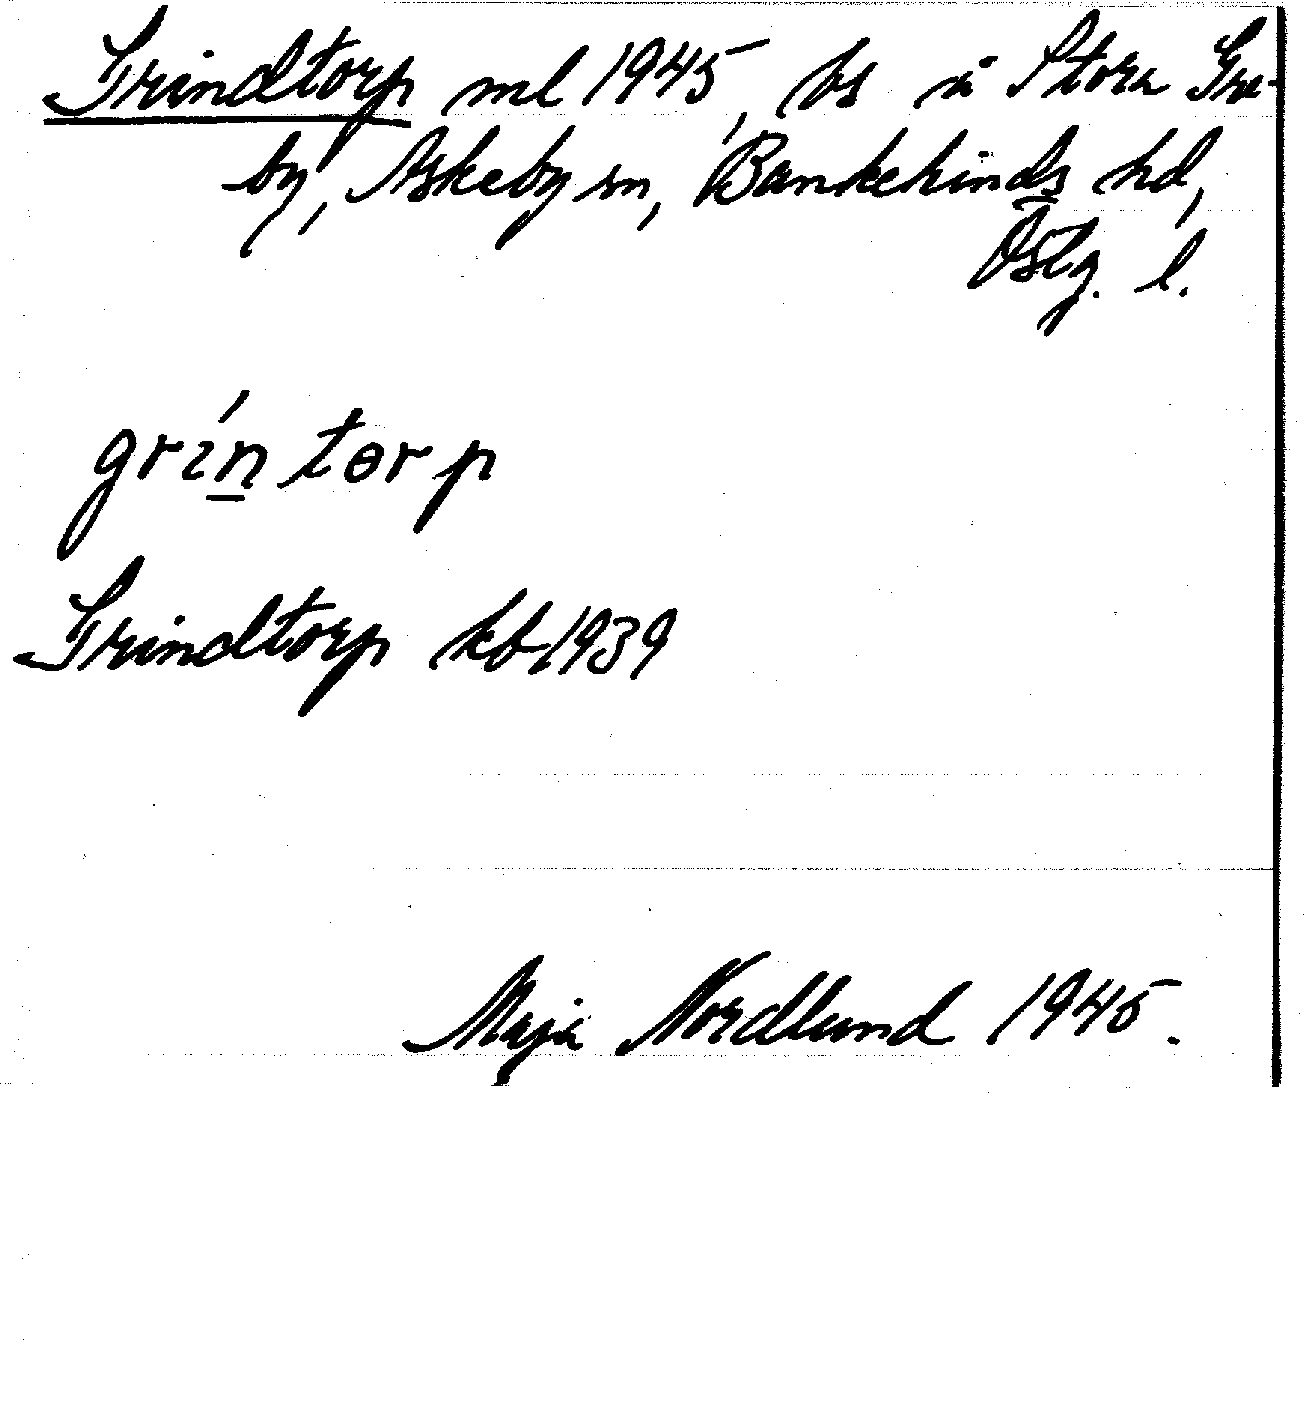 Grindtorp ml 1945, bs å Stora Gre-
by, Askeby sn, Bankekinds hd,
Östg. l.
grín̲ tɵrp
Grindtorp kb 1939
Maja Nordlund 1945.